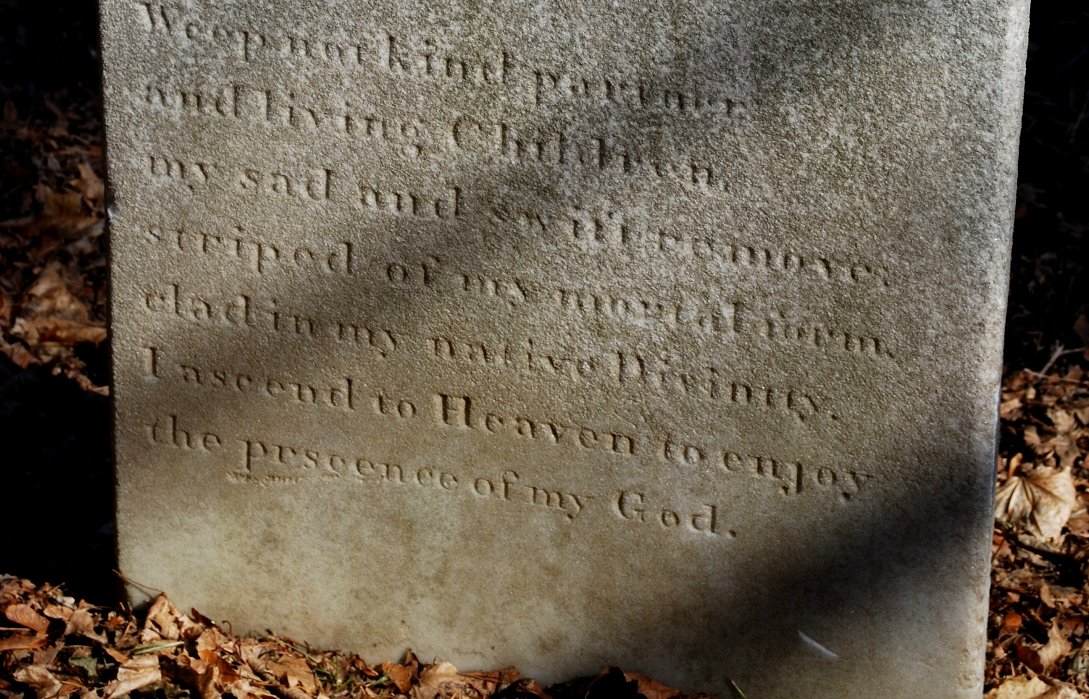 Weep not kind partner
and living Children,
my sad and swift remove;
striped of my mortal form,
clad in my native Divinity.
I ascend to Heaven to enjoy
the prscence of my God.